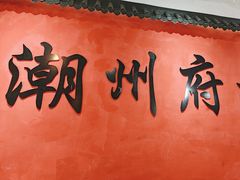 潮州府